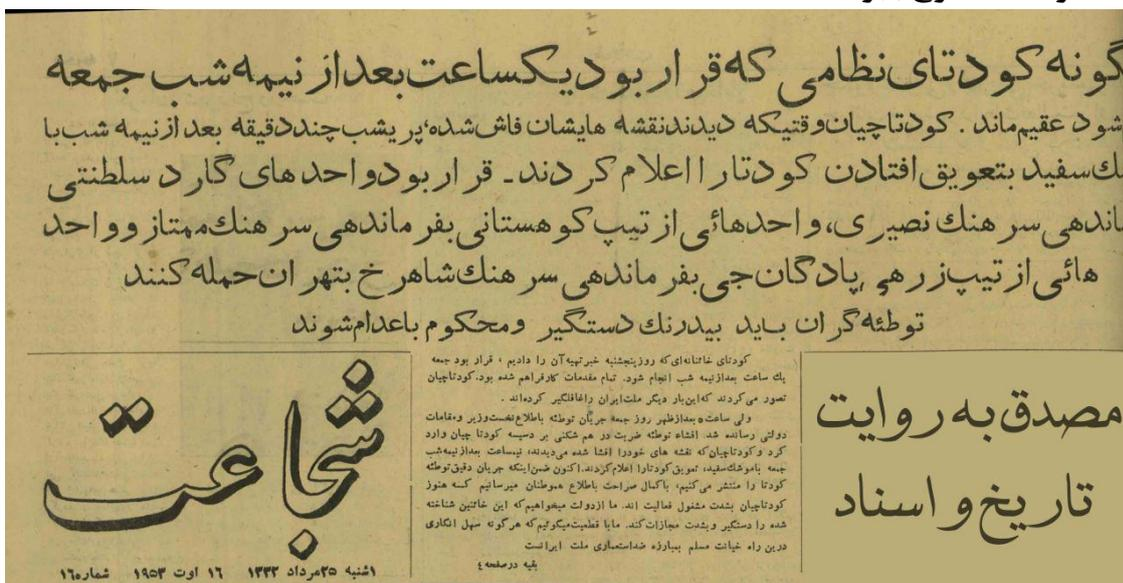 گونه کودتای نظامی که قرار بود یکساعت بعد از نیمه شب جمعه
شود عقیم ماند . کودتاچیان وقتیکه دیدند نقشه هایشان فاش شده، پریشب چند دقیقه بعد از نیمه شب با
شك سفید بتعویق افتادن کودتا را اعلام کردند ـ قرار بود واحد های گارد سلطنتی
ماندهی سرهنك نصیری، واحدهائی از تیپ کوهستانی بفرماندهی سرهنك ممتاز و واحد
هائی از تیپ زرهی پادگان جی بفرماندهی سرهنك شاهرخ بتهران حمله کنند
توطئه گران باید بیدرنك دستگیر ومحکوم باعدام شوند
شجاعت
۱شنبه ۲۵مرداد ۱۳۳۲ ۱۶ اوت ۱۹۵۳ شماره۱۶
کودتای خائنانه‌ای که روز پنجشنبه خبر تهیه آن را دادیم ، قرار بود جمعه
یك ساعت بعداز نیمه شب انجام شود. تمام مقدمات کار فراهم شده بود. کودتاچیان
تصور می‌کردند که این بار دیگر ملت ایران را غافلگیر کرده‌اند .
ولی ساعت ۵ بعدازظهر روز جمعه جریان توطئه باطلاع نخست وزیر ومقامات
دولتی رسانده شد. افشاء توطئه ضربت در هم شکنی بر دسیسه کودتا چیان وارد
کرد و کودتاچیان که نقشه های خود را افشا شده می‌دیدند، نیمساعت بعداز نیمه‌شب
جمعه باموشك سفید، تعویق کودتا را اعلام کردند. اکنون ضمن اینکه جریان دقیق توطئه
کودتا را منتشر می‌کنیم، باکمال صراحت باطلاع هموطنان میرسانیم کسه هنوز
کودتاچیان بشدت مشغول فعالیت اند. ما ازدولت میخواهیم که این خائنین شناخته
شده را دستگیر وبشدت مجازات کند. ما با قطعیت میگوئیم که هر گونه سهل انگاری
درین راه خیانت مسلم بمبارزه ضداستعماری ملت ایرانست
بقیه درصفحه ۴
مصدق به روایت
تاریخ و اسناد